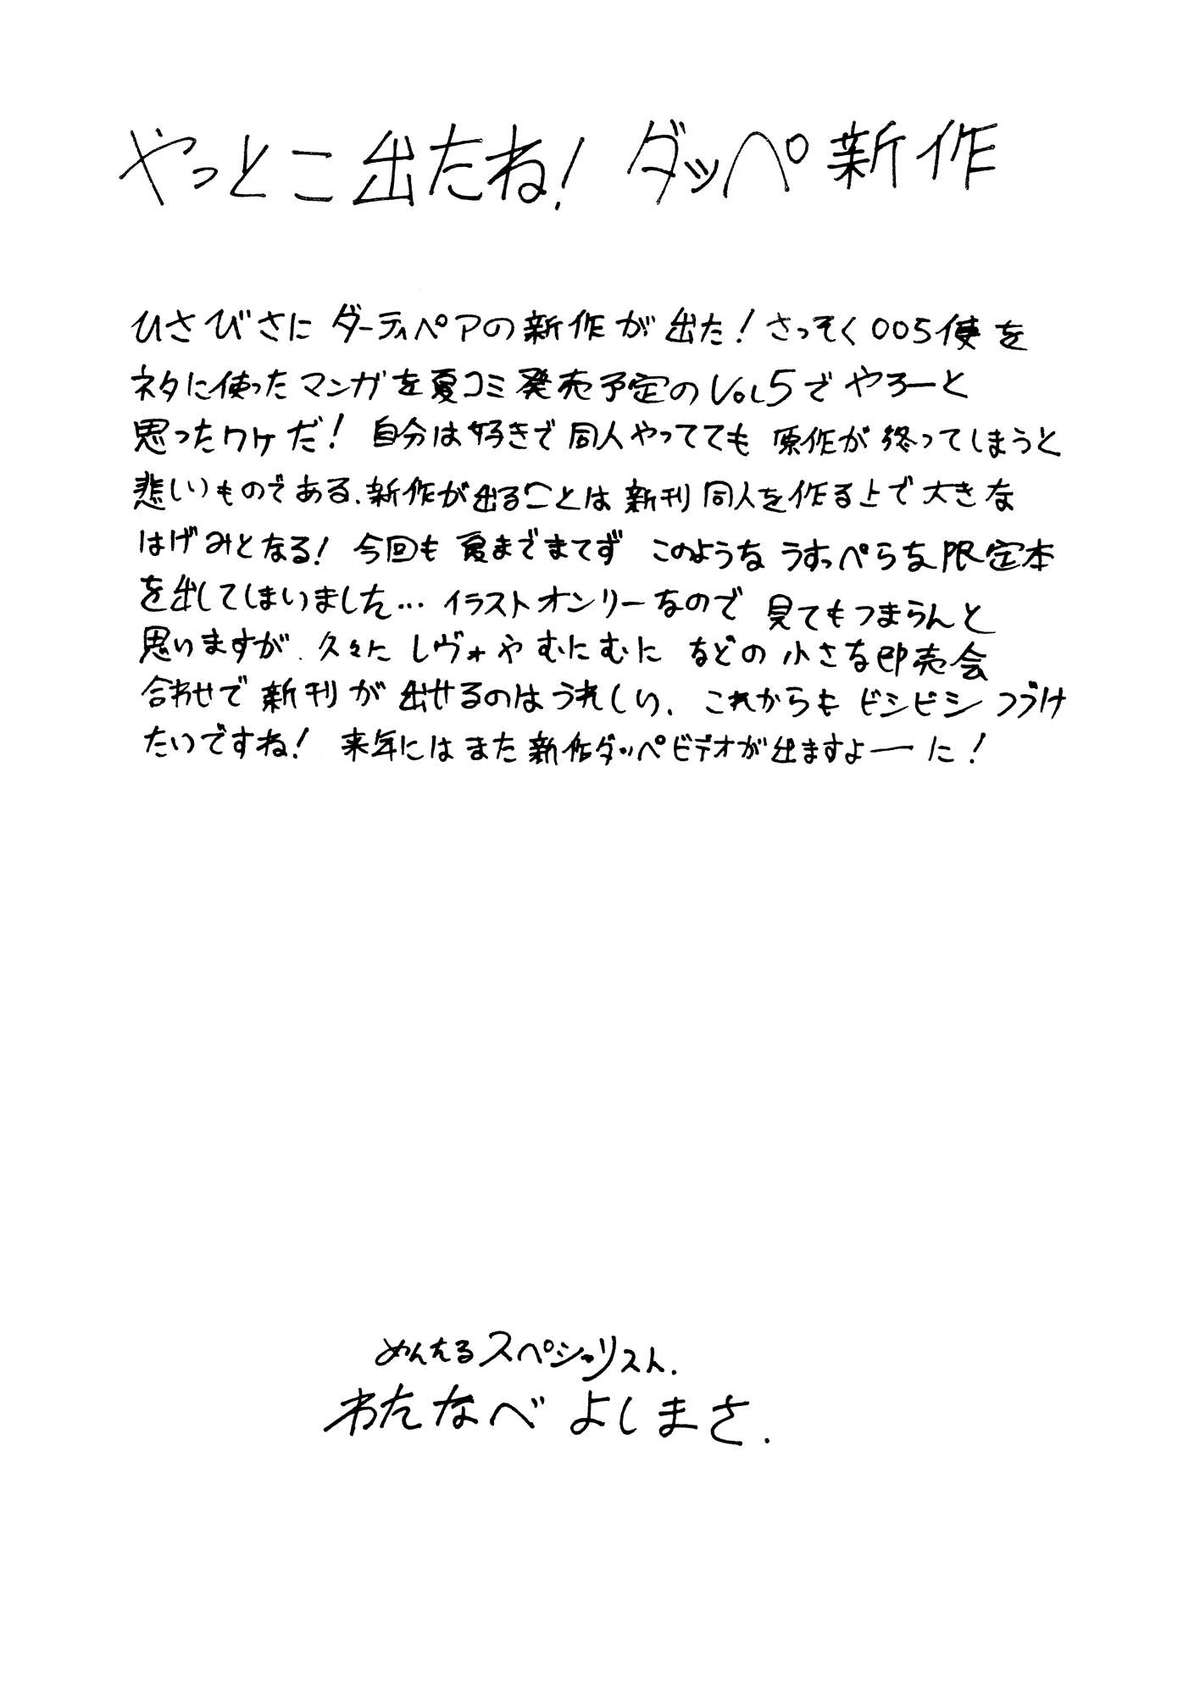 やっとこ出たね! ダッペ新作
ひさびさに ダーティペアの新作が出た! さっそく005便を
ネタに使ったマンガを夏コミ発売予定のVOL5でやろーと
思ったワケだ! 自分は好きで同人やってても 原作が終ってしまうと
悲しいものである、新作が出ることは新刊同人を作る上で大きな
はげみとなる! 今回も夏までまてず このような うすっぺらな限定本
を出してしまいました… イラストオンリーなので 見てもつまらんと
思いますが、久々に レヴォや むにむに などの小さな即売会
合わせで新刊が出せるのはうれしい、これからもビシビシつづけ
たいですね! 来年にはまた新作ダッペビデオが出ますよーに!
めんえるスペシャリスト.
わたなべ よしまさ.